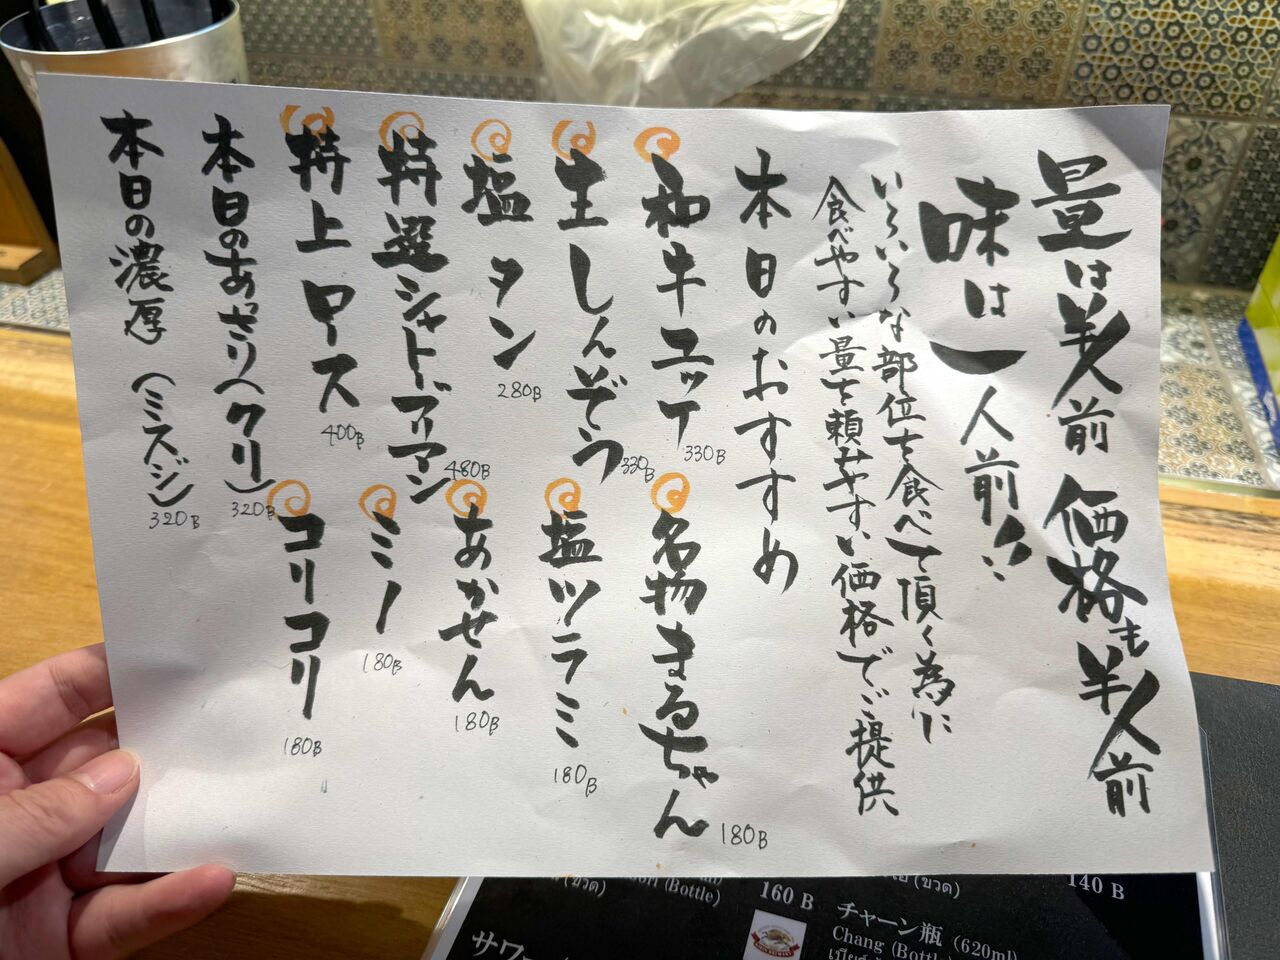 量は半人前 価格も半人前
味は一人前!!
いろいろな部位を食べて頂く為に
食べやすい量を頼みやすい価格でご提供
本日のおすすめ
和牛ユッケ 330B
生しんぞう 330B
塩タン 280B
特選シャトーブリアン 480B
特上ロース 400B
本日のあっさり(クリ) 320B
本日の濃厚(ミスジ) 320B
名物まるちゃん 180B
塩ツラミ 180B
あかせん 180B
ミノ 180B
コリコリ 180B
(ขวด)
(Bottle)
160 B
(ขวด)
140 B
チャーン瓶 (620ml)
Chang (Bottle)
サワー